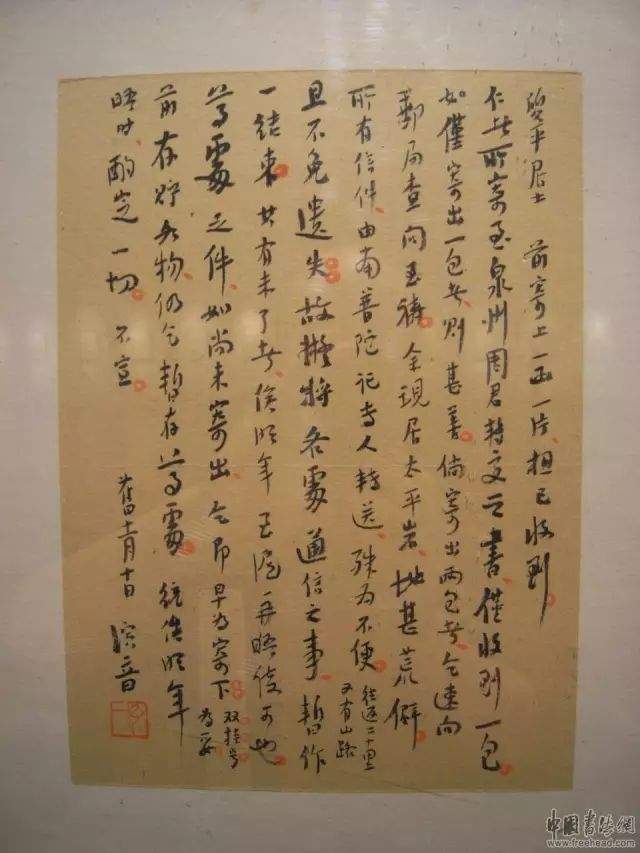 質平居士 前寄上一函一片、想已收到。
仁者所寄至泉州周君轉交之書、僅收到一包。
如僅寄出一包者、則甚善。倘寄出兩包者、乞速向
郵局查问至禱。余現居太平岩、地甚荒僻。
所有信件、由南普陀託专人轉送、殊为不便。
往返二十里
又有山路
且不免遺失。故擬將各處通信之事、暫作
一結束。其有未了者、俟明年至滬再晤後可也。
尊處之件、如尚未寄出、乞即早为寄下。
双挂号
为妥
前存貯各物、仍乞暫存尊處。統俟明年
晤时、酌定一切。不宣。
舊十一月十日 演音
中國書法網
www.freehead.com